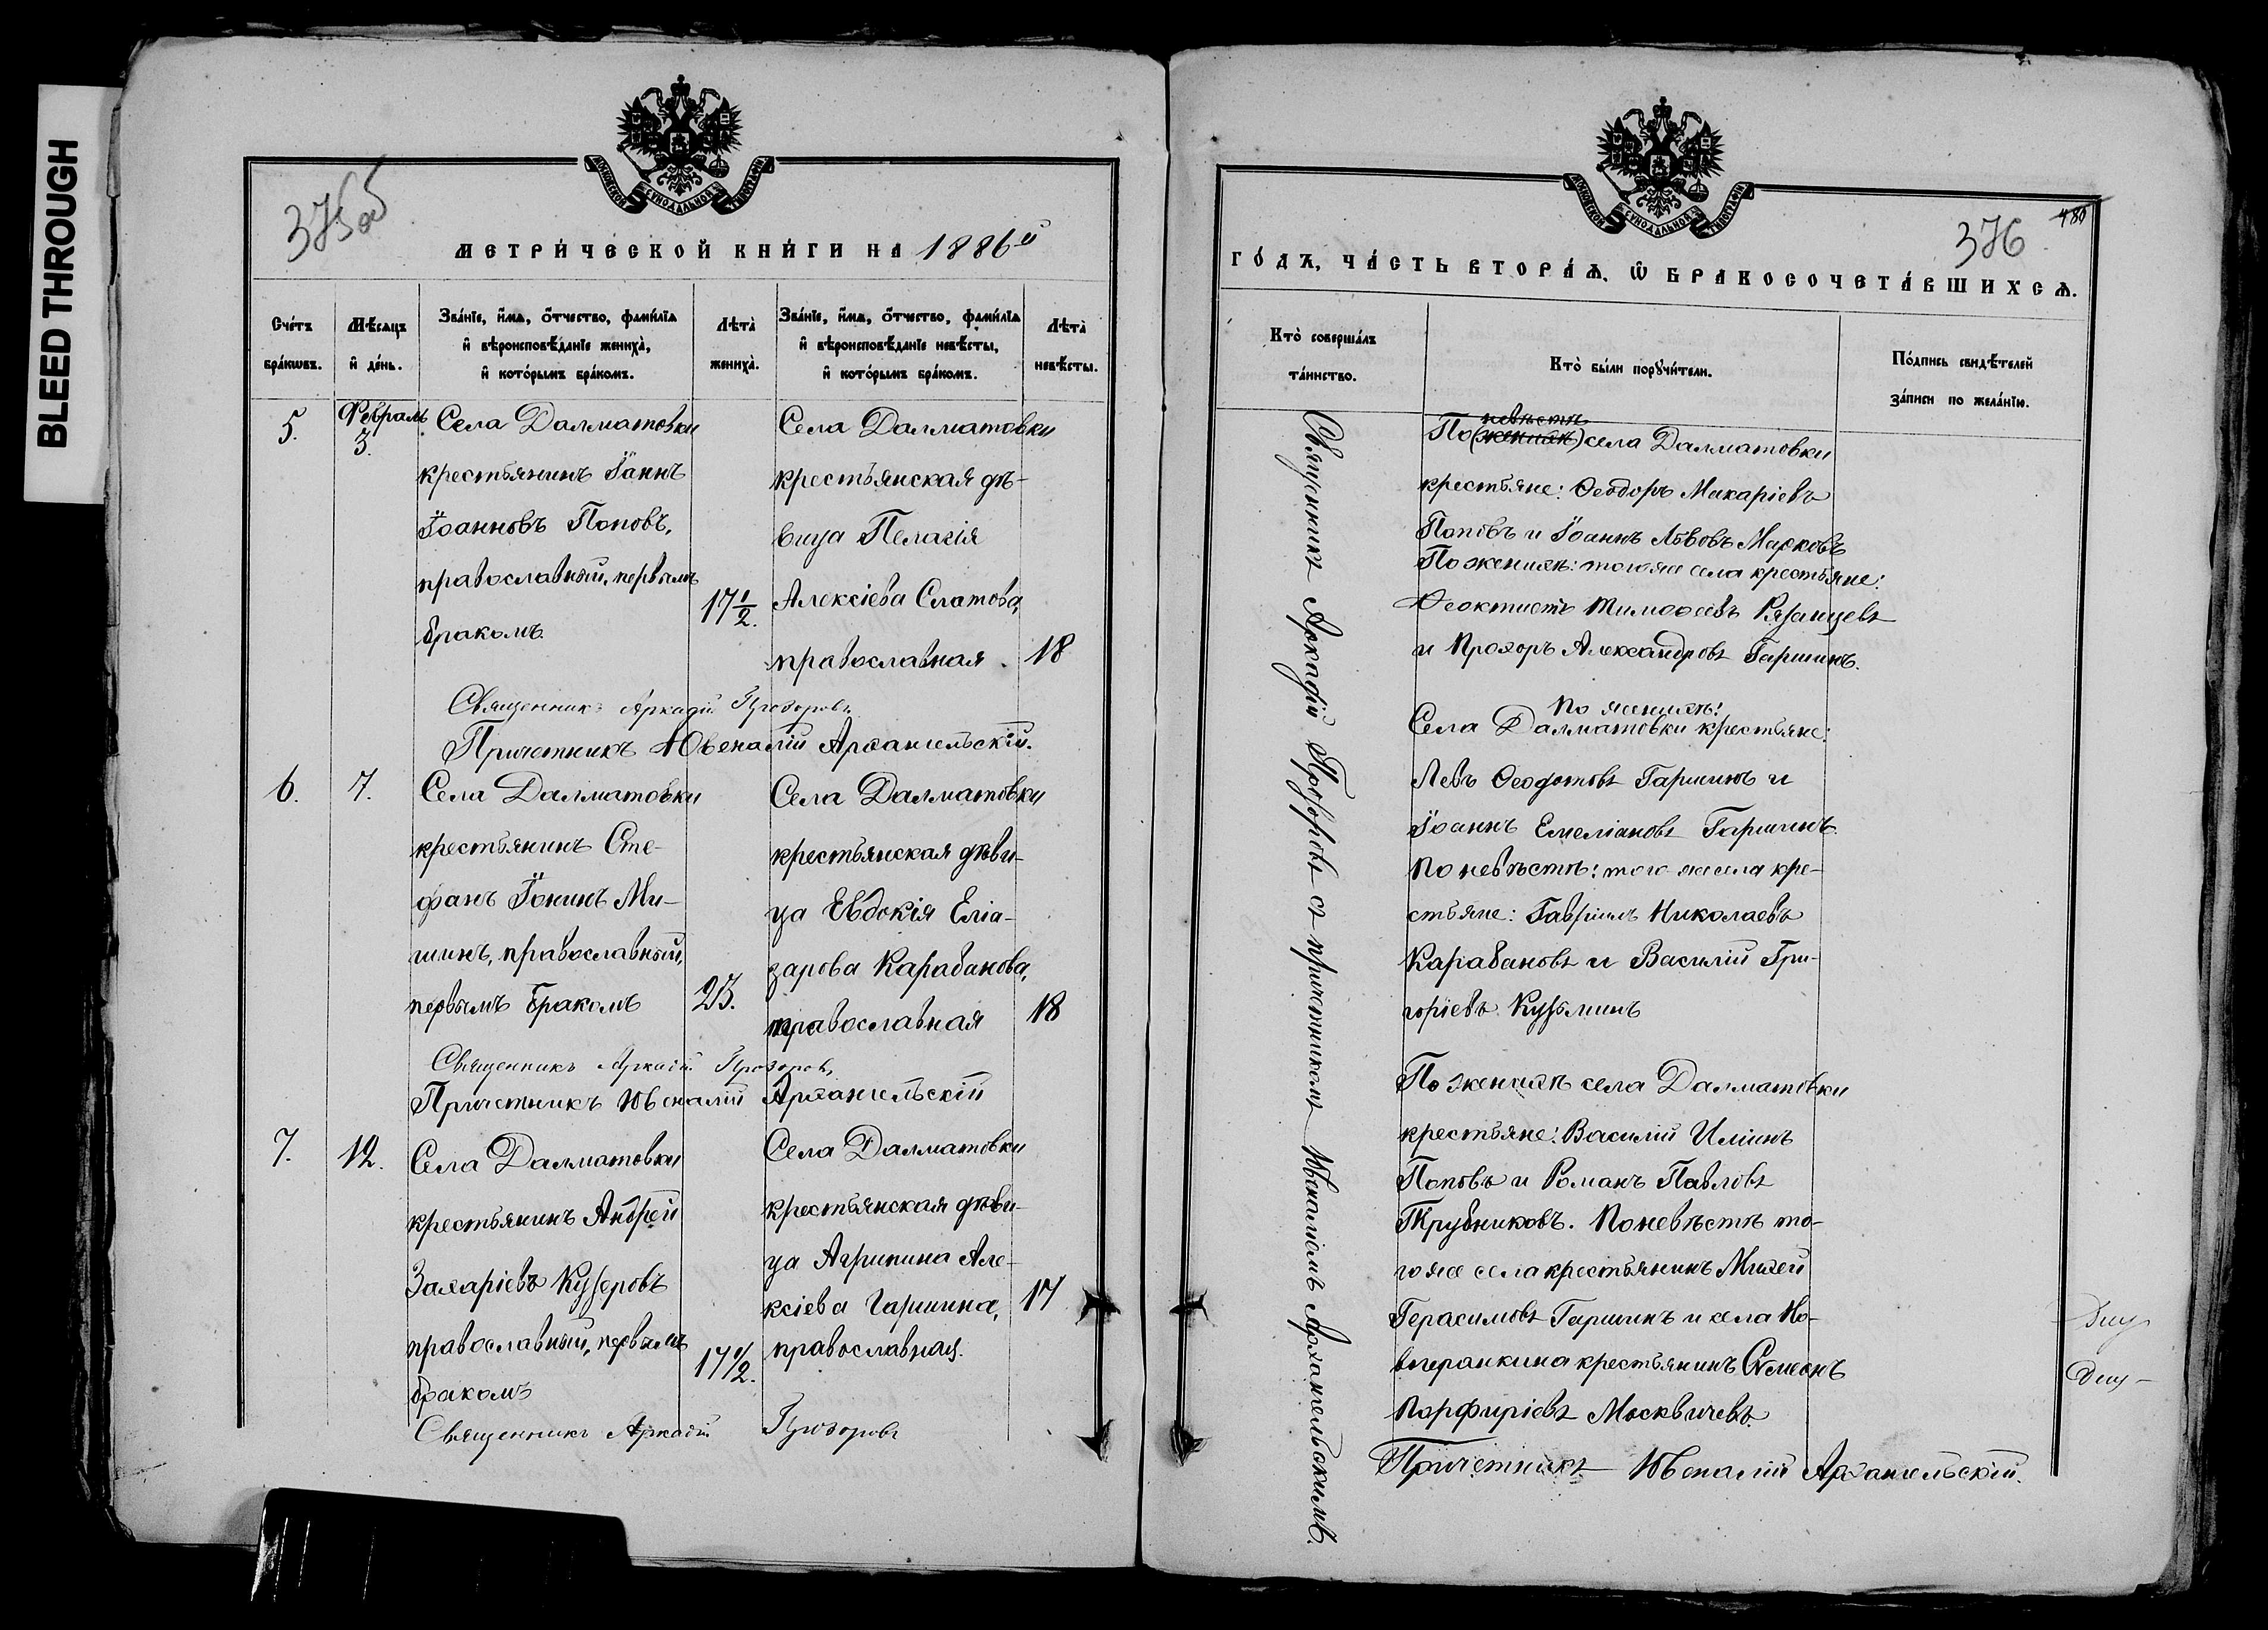 BLEED THROUGH
375об
МЕТРИ́ЧЕСКОЙ КНИ́ГИ НА 1886й
Сче́тъ бра́кωвъ.
Мѣ́сяцъ и҆ де́нь.
Зва́нїе, и҆́мѧ, ѻ҆́тчество, фами́лїѧ и҆ вѣроисповѣ́данїе жениха̀, и҆ кото́рымъ бра́комъ.
Лѣта̀ жениха̀.
Зва́нїе, и҆́мѧ, ѻ҆́тчество, фами́лїѧ и҆ вѣроисповѣ́данїе невѣ́сты, и҆ кото́рымъ бра́комъ.
Лѣта̀ невѣ́сты.
5.
Февраль
3.
Села Далматовки
крестьянинъ Іоаннъ
Іоанновъ Поповъ,
православный, первымъ
бракомъ.
17 1/2.
Села Далматовки
крестьянская дѣ-
вица Пелагія
Алексіева Слатова,
православная.
18
Священникъ Аркадій Прозоровъ
Причетникъ Ювеналій Архангельскій.
6.
7.
Села Далматовки
крестьянинъ Сте-
фанъ Іонинъ Ми-
шинъ, православный,
первымъ бракомъ
23.
Села Далматовки
крестьянская дѣви-
ца Евдокія Еліа-
зарова Карабанова,
православная
18
Священникъ Аркадій Прозоровъ
Причетникъ Ювеналій Архангельскій
7.
12.
Села Далматовки
крестьянинъ Андрей
Захаріевъ Кузеровъ
православный, первымъ
бракомъ
17 1/2.
Села Далматовки
крестьянская дѣви-
ца Агрипина Але-
ксіева Гаршина,
православная.
17
Священникъ Аркадій Прозоровъ
480
376
ГО́ДЪ, ЧА́СТЬ ВТОРА́Ѧ, Ѡ҆ БРАКОСОЧЕТА́ВШИХСѦ.
Кто̀ соверша́лъ та́инство.
Кто̀ бы́ли порꙋчи́тели.
По́дпись свидѣ́телей за́писи по жела́нїю.
Священникъ Аркадій Прозоровъ съ причетникомъ Ювеналіемъ Архангельскимъ.
невѣстѣ
По (женихѣ) села Далматовки
крестьяне: Ѳеодоръ Макаріевъ
Поповъ и Іоаннъ Львовъ Марковъ
По женихѣ: тогоже села крестьяне:
Ѳеоктистъ Тимоѳеевъ Рязанцевъ
и Прохоръ Александровъ Гаршинъ.
По женихѣ:
Села Далматовки крестьяне:
Левъ Ѳеодотовъ Гаршинъ и
Іоаннъ Емеліановъ Гаршинъ.
По невѣстѣ: того же села кре-
стьяне: Гавріилъ Николаевъ
Карабановъ и Василій Гри-
горіевъ Кузьминъ
По женихѣ села Далматовки
крестьяне: Василій Иліинъ
Поповъ и Романъ Павловъ
Трубниковъ. По невѣстѣ то-
гоже села крестьянинъ Михей
Герасимовъ Гаршинъ и села Но-
вогеранкина крестьянинъ Сѵмеонъ
Порфиріевъ Москвичевъ
Причетникъ Ювеналій Архангельскій.